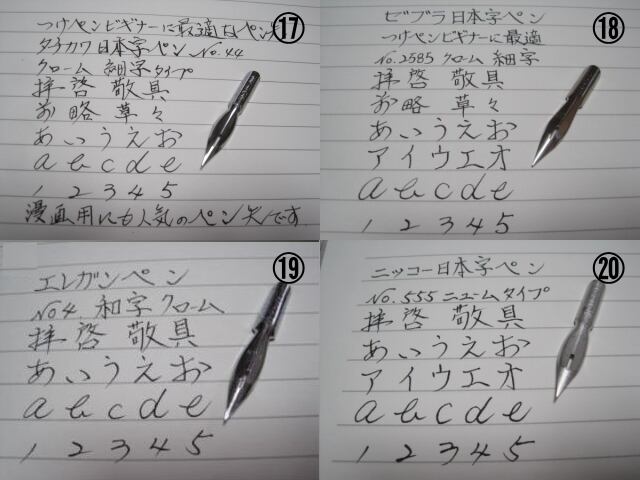 ⑰
つけペンビギナーに最適なペン先
タチカワ日本字ペン No.44
クローム 細字タイプ
拝啓 敬具
前略 草々
あいうえお
a b c d e
1 2 3 4 5
漫画用にも人気のペン先です
⑱
ゼブラ日本字ペン
つけペンビギナーに最適
No.2585 クローム 細字
拝啓 敬具
前略 草々
あいうえお
アイウエオ
a b c d e
1 2 3 4 5
⑲
エレガンペン
No4. 和字 クローム
拝啓 敬具
あいうえお
a b c d e
1 2 3 4 5
⑳
ニッコー日本字ペン
No.555 ニュームタイプ
拝啓 敬具
あいうえお
アイウエオ
a b c d e
1 2 3 4 5